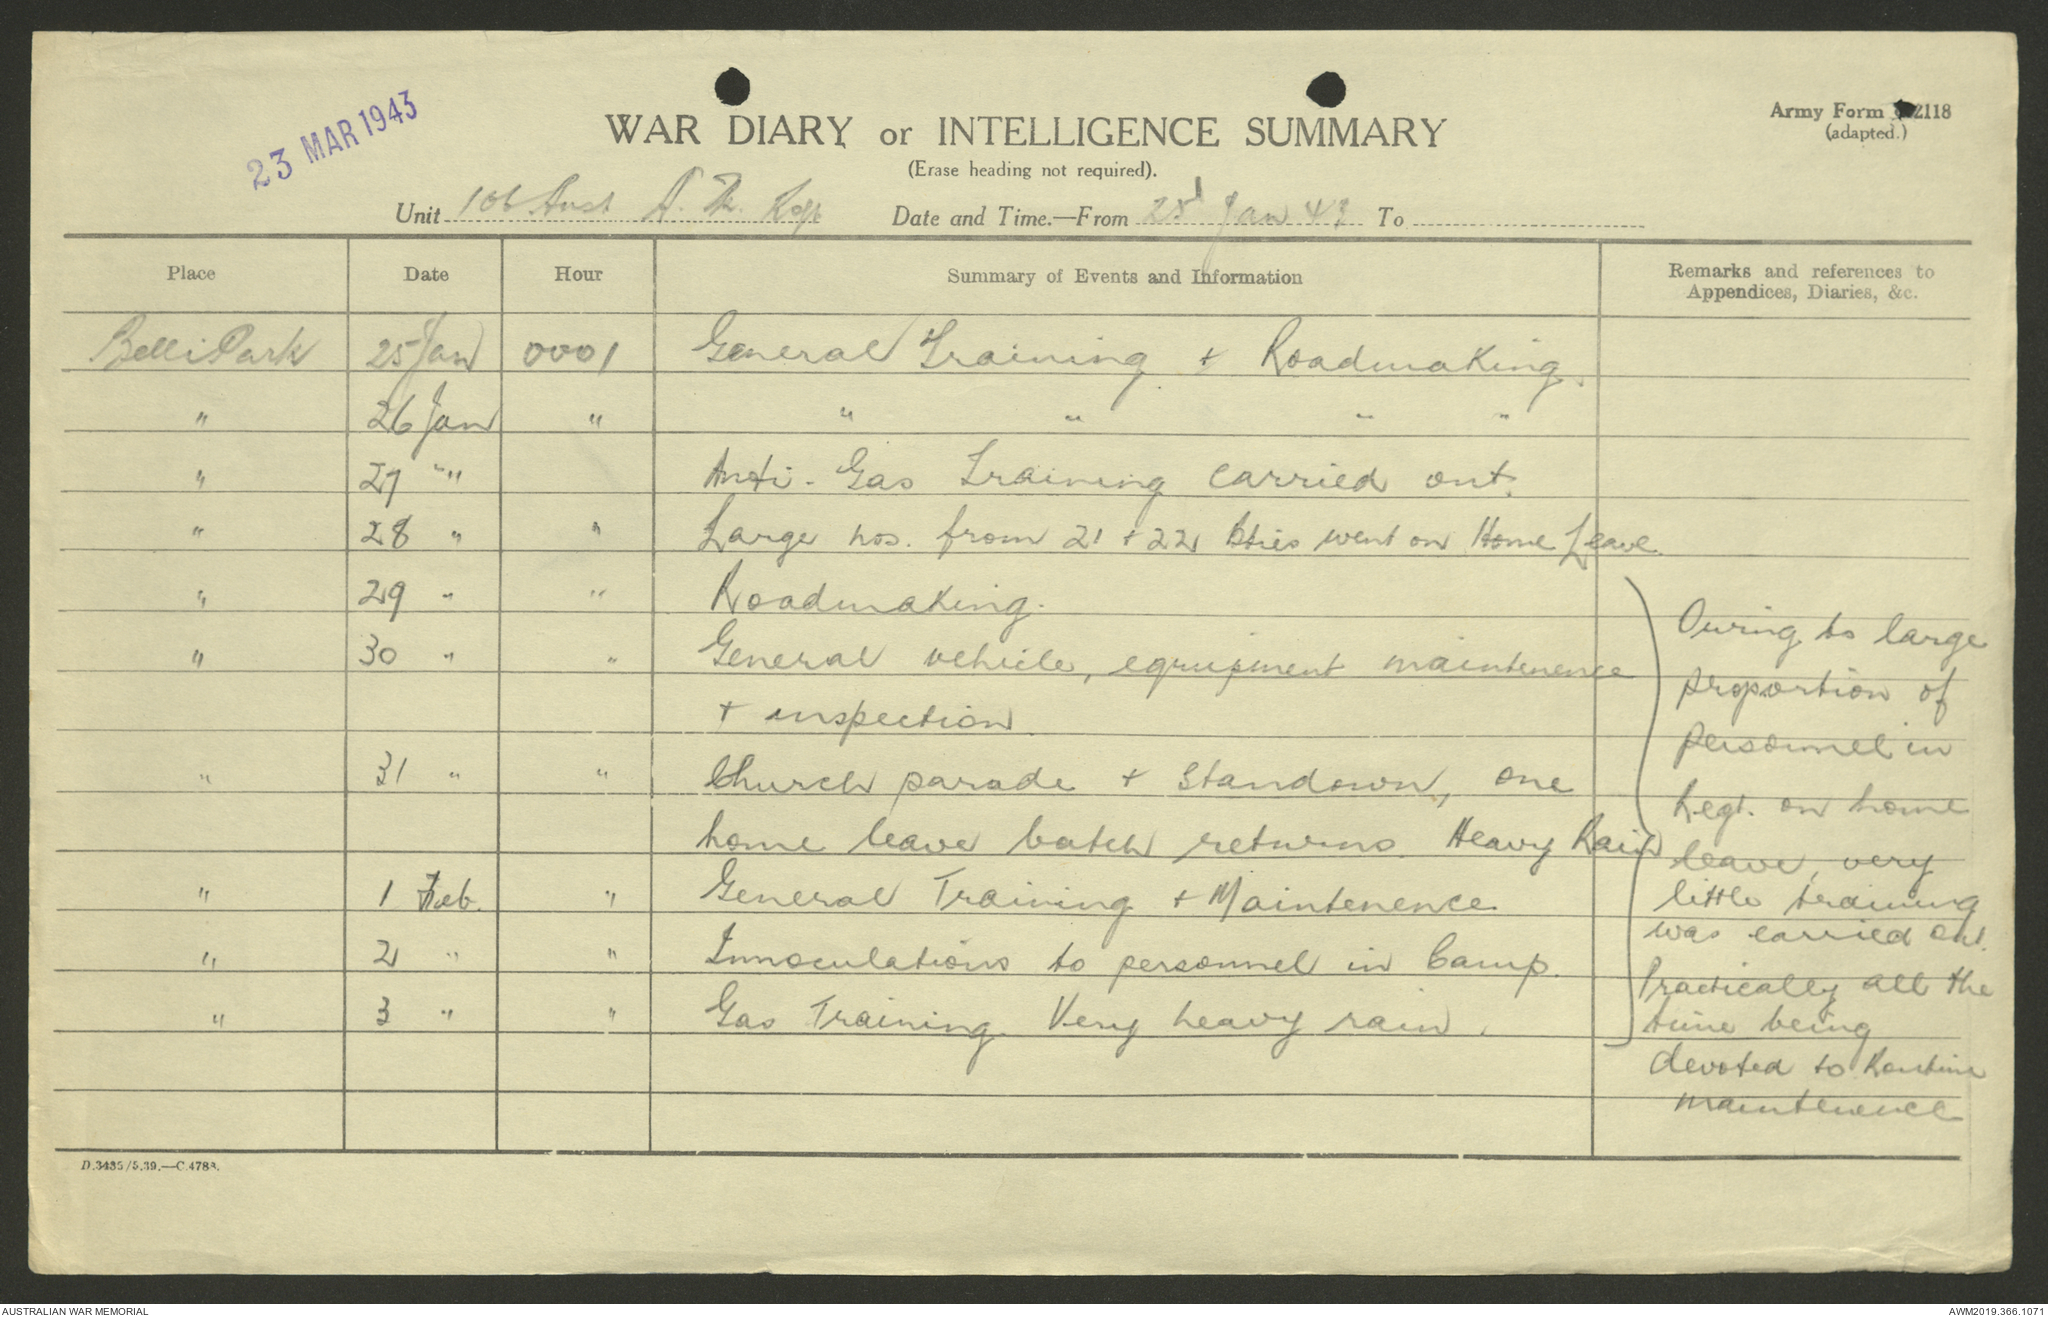 23 MAR 1943
Army Form 2118
(adapted.)
WAR DIARY or INTELLIGENCE SUMMARY
(Erase heading not required).
Unit 106 Aust A. Tk. Regt Date and Time.—From 25 Jan 43 To
Place Date Hour Summary of Events and Information Remarks and references to
Appendices, Diaries, &c.
Belli Park 25 Jan 0001 General Training + Roadmaking.
" 26 Jan " " " " "
" 27 " Anti-Gas Training carried out.
" 28 " " Large nos. from 21 + 22 Btries went on Home Leave.
" 29 " " Roadmaking.
" 30 " " General vehicle, equipment maintenence
+ inspection
" 31 " " Church parade + standown, one
home leave batch returns. Heavy Rain
" 1 Feb. " General Training + Maintenence.
" 2 " " Innoculations to personnel in Camp.
" 3 " " Gas Training. Very heavy rain.
Owing to large
proportion of
personnel in
Regt. on home
leave, very
little training
was carried out.
Practically all the
time being
devoted to Routine
maintenence
D.3435/5.39.—C.4788.
AUSTRALIAN WAR MEMORIAL
AWM2019.366.1071